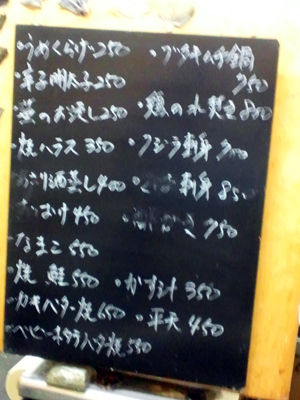 うめくらげ 250
・ブタキムチ鍋 750
辛子明太子 250
葉のお浸し 250
・鶏の水炊き 800
・焼ハラス 350
・クジラ刺身 700
あさり酒蒸し 400
刺身 850
おばけ 450
750
なまこ 550
焼 鮭 550
・かす汁 350
・カキバター焼 650
・平天 450
ベビーホタテバター焼 550